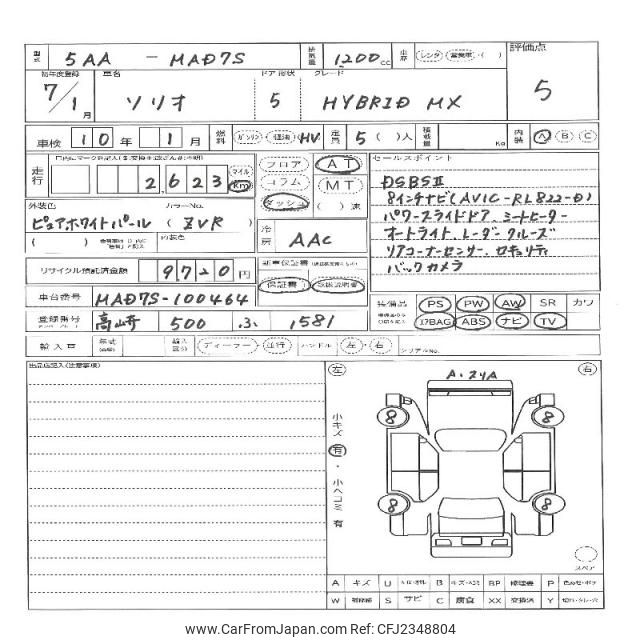 型式 5AA - MAD7S 排気量 1.200 cc 車歴 レンタ ・ 営業車 ・( ) 評価点
初年度登録 車名 ドア 形状 グレード
7/1 月 ソリオ 5 HYBRID MX 5
車検 10 年 1 月 燃料 ガソリン・軽油・HV 定員 5 ( )人 積載量 Kg 内装 A B C
走行 2,623 マイル Km フロア AT コラム MT ダッシュ ( )速
セールスポイント
DSBSⅡ
8インチナビ(AVIC-RL822-D)
パワースライドドア、ミートヒーター
オートライト、レーダークルーズ
リアコーナーセンサー、セキュリティ
バックカメラ
外装色 カラーNo.
ピュアホワイトパール ( ZVR )
内装色
冷房 AAC
リサイクル預託済金額 9720 円
新車保証書
保証書 取扱説明書
車台番号 MAD7S-100464
装備品 PS PW AW SR カワ
ｴｱBAG ABS ナビ TV
登録番号 高崎 500 ふ 1581
輸入車 年式 輸入区分 ディーラー・並行 ハンドル 左・右 シリアルNo.
出品店記入(注意事項)
左 右
A・24A
小キズ 有 ・ 小ヘコミ 有
8 8
8 8
スペア
A キズ U B BP P
W S サビ C 腐食 XX 交換済 Y
© www.CarFromJapan.com | Ref: CFJ2348804